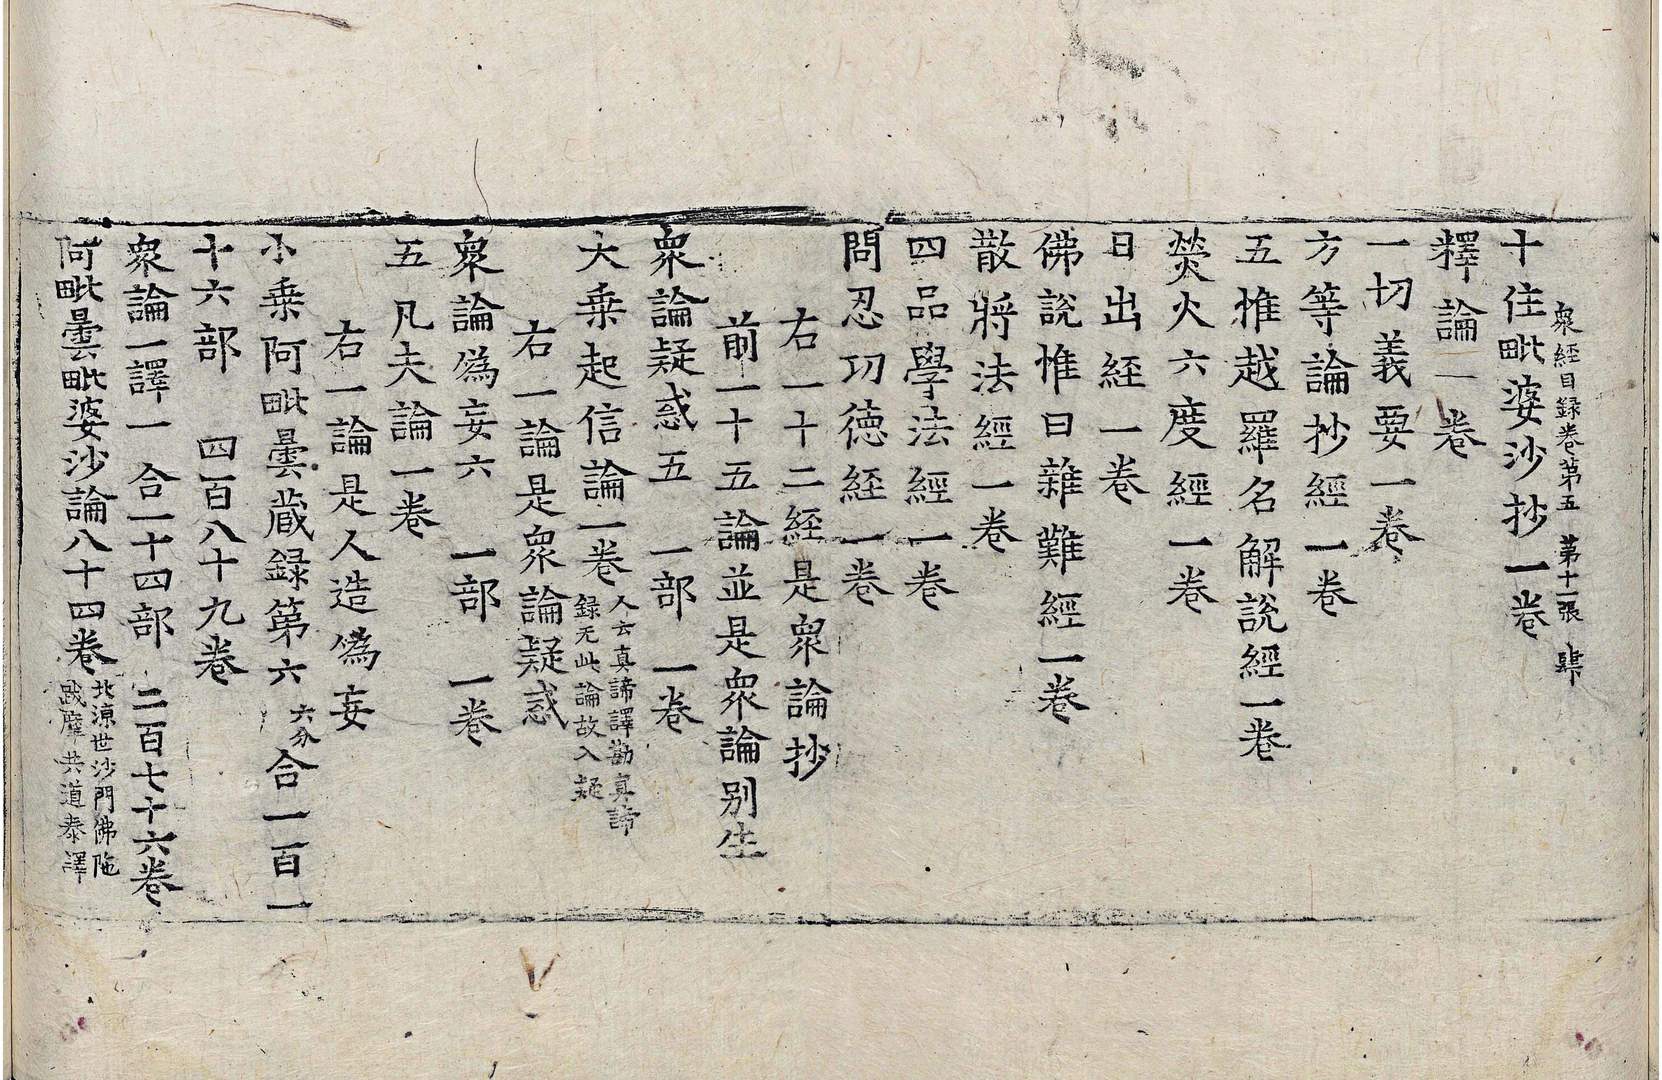 衆經目録卷第五　第十一張　肆
十住毗婆沙抄一卷
釋論一卷
一切義要一卷
方等論抄經一卷
五惟越羅名解說經一卷
熒火六度經一卷
日出經一卷
佛說惟曰雜難經一卷
散將法經一卷
四品學法經一卷
問忍功德經一卷
右一十二經是衆論抄
前一十五論並是衆論别生
衆論疑惑五　一部　一卷
大乗起信論一卷人云真諦譯勘真諦録无此論故入疑
右一論是衆論疑惑
衆論偽妄六　一部　一卷
五凡夫論一卷
右一論是人造偽妄
小乗阿毗曇藏録第六六分合一百一
十六部　四百八十九卷
衆論一譯一　合一十四部　二百七十六卷
阿毗曇毗婆沙論八十四卷北涼世沙門佛陁跋摩共道泰譯